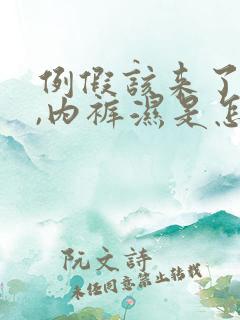 例假该来了
,内裤湿是怎
阮文诗
未经同意禁止转载